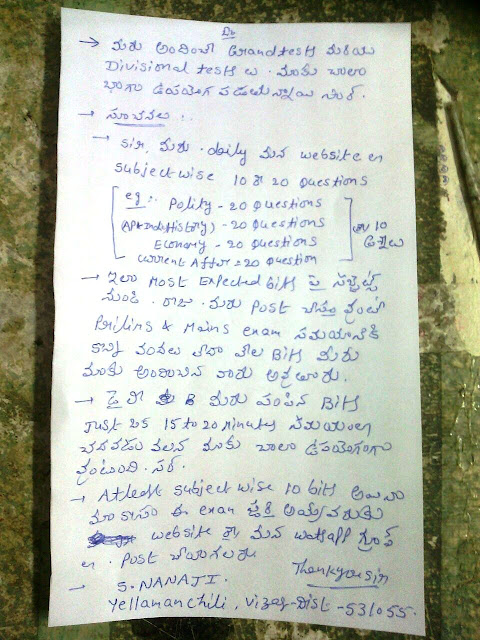 → మీరు అందించే Grandtests మరియు
Divisional tests లు. మాకు చాలా
బాగా ఉపయోగ పడుతున్నాయి సర్.
→ సూచనలు :.
→ sir, మీరు. daily మన website లో
subject wise 10 or 20 Questions
eg:- Polity - 20 Questions
(AP & Ind. History) - 20 Questions
Economy - 20 Questions
current Affair = 20 Question
or 10
→ ఇలా Most Expected bits పై సబ్జెక్ట్స్
నుండి. రోజు. మీరు Post చేస్తూ వుంటే
Prilims & Mains exam సమయానికి
కొన్ని వందలు లేదా వేల Bits మీరు
మాకు అందించిన వారు అవుతారు.
→ డైలీ మీరు పంపిన Bits
Just 15 to 20 minutes సమయంలో
చదవడం వలన మాకు చాలా ఉపయోగంగా
వుంటుంది. సర్.
→ Atleast subject wise 10 bits అయినా
మా కోసం ఈ exam పూర్తి అయ్యేవరకు
website or మన watsapp గ్రూప్
లో. Post చేయగలరు
Thankyou sir
→ S. NANAJI.
Yellamanchili, Vizag-Dist - 531055.